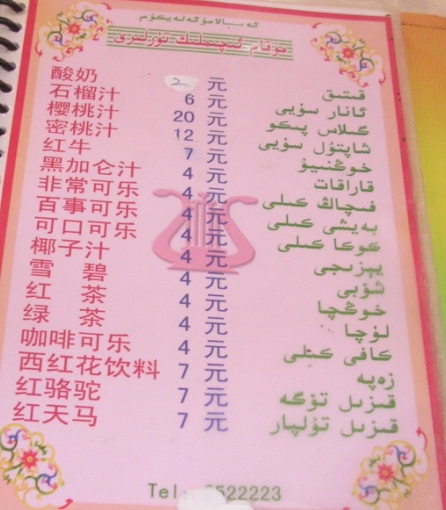 مۇقام ئىچىملىك تۈرلىرى
酸奶 2 元 قىتىق
石榴汁 6 元 ئانار سۈيى
樱桃汁 20 元 گىلاس
密桃汁 12 元 شاپتۇل سۈيى
红牛 7 元 خوڭنىيۇ
黑加仑汁 4 元 قاراقات
非常可乐 4 元 فىچاڭ كىلى
百事可乐 4 元 بەيشى كىلى
可口可乐 4 元 كوكا كىلى
椰子汁 4 元 يېزىجى
雪碧 4 元 شۆبى
红茶 4 元 خوڭچا
绿茶 4 元 لۈچا
咖啡可乐 4 元 كافى كىلى
西红花饮料 7 元 زەپە
红骆驼 7 元 قىزىل تۆگە
红天马 7 元 قىزىل تۇلپار
Tel: 522223